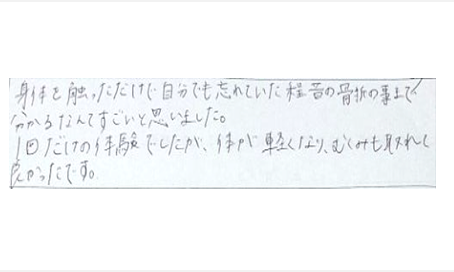 身体を触っただけで自分でも忘れていた程昔の骨折の事まで
分かるなんてすごいと思いました。
1回だけの体験でしたが、体が軽くなり、むくみも取れて
良かったです。